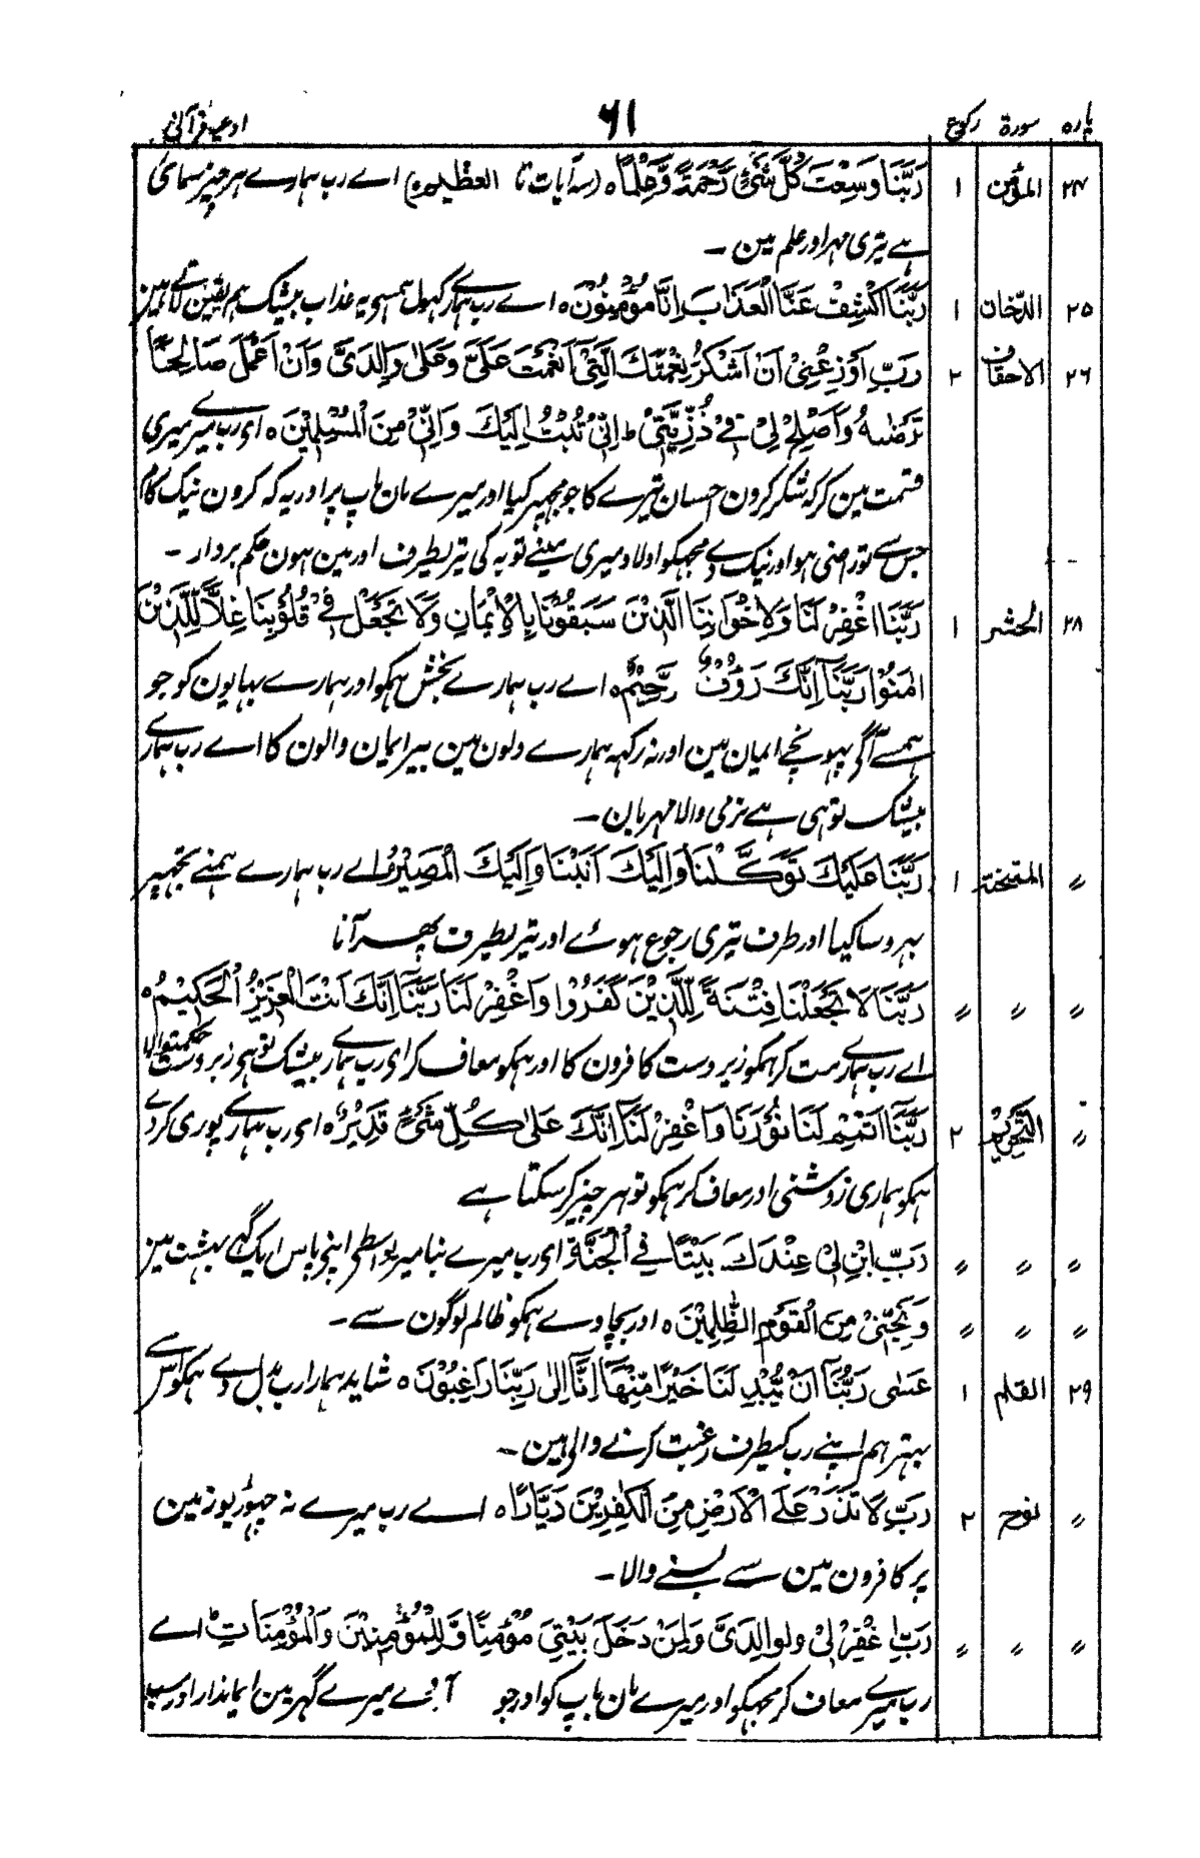 پارہ سورۃ رکوع ۶۱ ادعیہ قرآنی
۲۴ المؤمن ۱ رَبَّنَا وَسِعْتَ كُلَّ شَيْءٍ رَّحْمَةً وَّعِلْمًا ہ (سہ آیات تا العظیم ہ) اے رب ہمارے ہر چیز سمائی
ہے تیری مہر اور علم مین ۔
۲۵ الدّخان ۱ رَبَّنَا اكْشِفْ عَنَّا الْعَذَابَ اِنَّا مُؤْمِنُوْنَ ہ اے رب ہمارے کہول ہمسے یہ عذاب بیشک ہم یقین لاتے ہین
۲۶ الاحقاف ۲ رَبِّ اَوْزِعْنِیْ اَنْ اَشْكُرَ نِعْمَتَكَ الَّتِیْ اَنْعَمْتَ عَلَیَّ وَعَلٰی وَالِدَیَّ وَاَنْ اَعْمَلَ صَالِحًا
تَرْضٰىهُ وَاَصْلِحْ لِیْ فِیْ ذُرِّیَّتِیْ ط اِنِّیْ تُبْتُ اِلَیْكَ وَاِنِّیْ مِنَ الْمُسْلِمِیْنَ ہ ای رب میرے میری
قسمت مین کر کہ شکر کرون احسان تیرے کا جو مجھپر کیا اور میرے مان باپ پر اور یہ کہ کرون نیک کام
جس سے تو راضی ہو اور نیک دے مجہکو اولاد میری مینے توبہ کی تیریطرف اور مین ہون حکم بردار ۔
۲۸ الحشر ۱ رَبَّنَا اغْفِرْ لَنَا وَلِاِخْوَانِنَا الَّذِیْنَ سَبَقُوْنَا بِالْاِیْمَانِ وَلَا تَجْعَلْ فِیْ قُلُوْبِنَا غِلًّا لِّلَّذِیْنَ
اٰمَنُوْا رَبَّنَا اِنَّكَ رَءُوْفٌ رَّحِیْمٌ ہ اے رب ہمارے بخش ہمکو اور ہمارے بہایون کو جو
ہمسے آگے پہونچے ایمان مین اور نہ رکہہ ہمارے دلون مین بیر ایمان والون کا اے رب ہمارے
بیشک توہی ہے نرمی والا مہربان ۔
〃 الممتحنۃ ۱ رَبَّنَا عَلَیْكَ تَوَكَّلْنَا وَاِلَیْكَ اَنَبْنَا وَاِلَیْكَ الْمَصِیْرُ ہ اے رب ہمارے ہمنے تجہپر
بہروسا کیا اور طرف تیری رجوع ہوئے اور تیریطرف پھر آنا
〃 〃 〃 رَبَّنَا لَا تَجْعَلْنَا فِتْنَةً لِّلَّذِیْنَ كَفَرُوْا وَاغْفِرْ لَنَا رَبَّنَا اِنَّكَ اَنْتَ الْعَزِیْزُ الْحَكِیْمُ ہ
اے رب ہمارے مت کر ہمکو زیردست کافرون کا اور ہمکو معاف کر ای رب ہمارے بیشک توہی زبردست حکمتوالا
〃 التحریم ۲ رَبَّنَا اَتْمِمْ لَنَا نُوْرَنَا وَاغْفِرْ لَنَا اِنَّكَ عَلٰی كُلِّ شَیْءٍ قَدِیْرٌ ہ ای رب ہمارے پوری کردے
ہمکو ہماری روشنی اور معاف کر ہمکو تو ہر چیز کر سکتا ہے
〃 〃 〃 رَبِّ ابْنِ لِیْ عِنْدَكَ بَیْتًا فِی الْجَنَّةِ ای رب میرے بنا میرے واسطے اپنے پاس ایک گہر بہشت مین
〃 〃 〃 وَنَجِّنِیْ مِنَ الْقَوْمِ الظّٰلِمِیْنَ ہ اور بچاوے ہمکو ظالم لوگون سے ۔
۲۹ القلم ۱ عَسٰی رَبُّنَا اَنْ یُّبْدِلَنَا خَیْرًا مِّنْهَا اِنَّا اِلٰی رَبِّنَا رَاغِبُوْنَ ہ شاید ہمارا رب بدل دے ہمکو اس سے
بہتر ہم اپنے رب کیطرف رغبت کرنے والے ہین ۔
〃 نوح ۲ رَبِّ لَا تَذَرْ عَلَی الْاَرْضِ مِنَ الْكٰفِرِیْنَ دَیَّارًا ہ اے رب میرے نہ چہوڑیو زمین
پر کافرون مین سے بسنے والا ۔
〃 〃 〃 رَبِّ اغْفِرْ لِیْ وَلِوَالِدَیَّ وَلِمَنْ دَخَلَ بَیْتِیَ مُؤْمِنًا وَّلِلْمُؤْمِنِیْنَ وَالْمُؤْمِنَاتِ ط اے
رب میرے معاف کر مجہکو اور میرے مان باپ کو اور جو آوے میرے گہر مین ایماندار اور سب